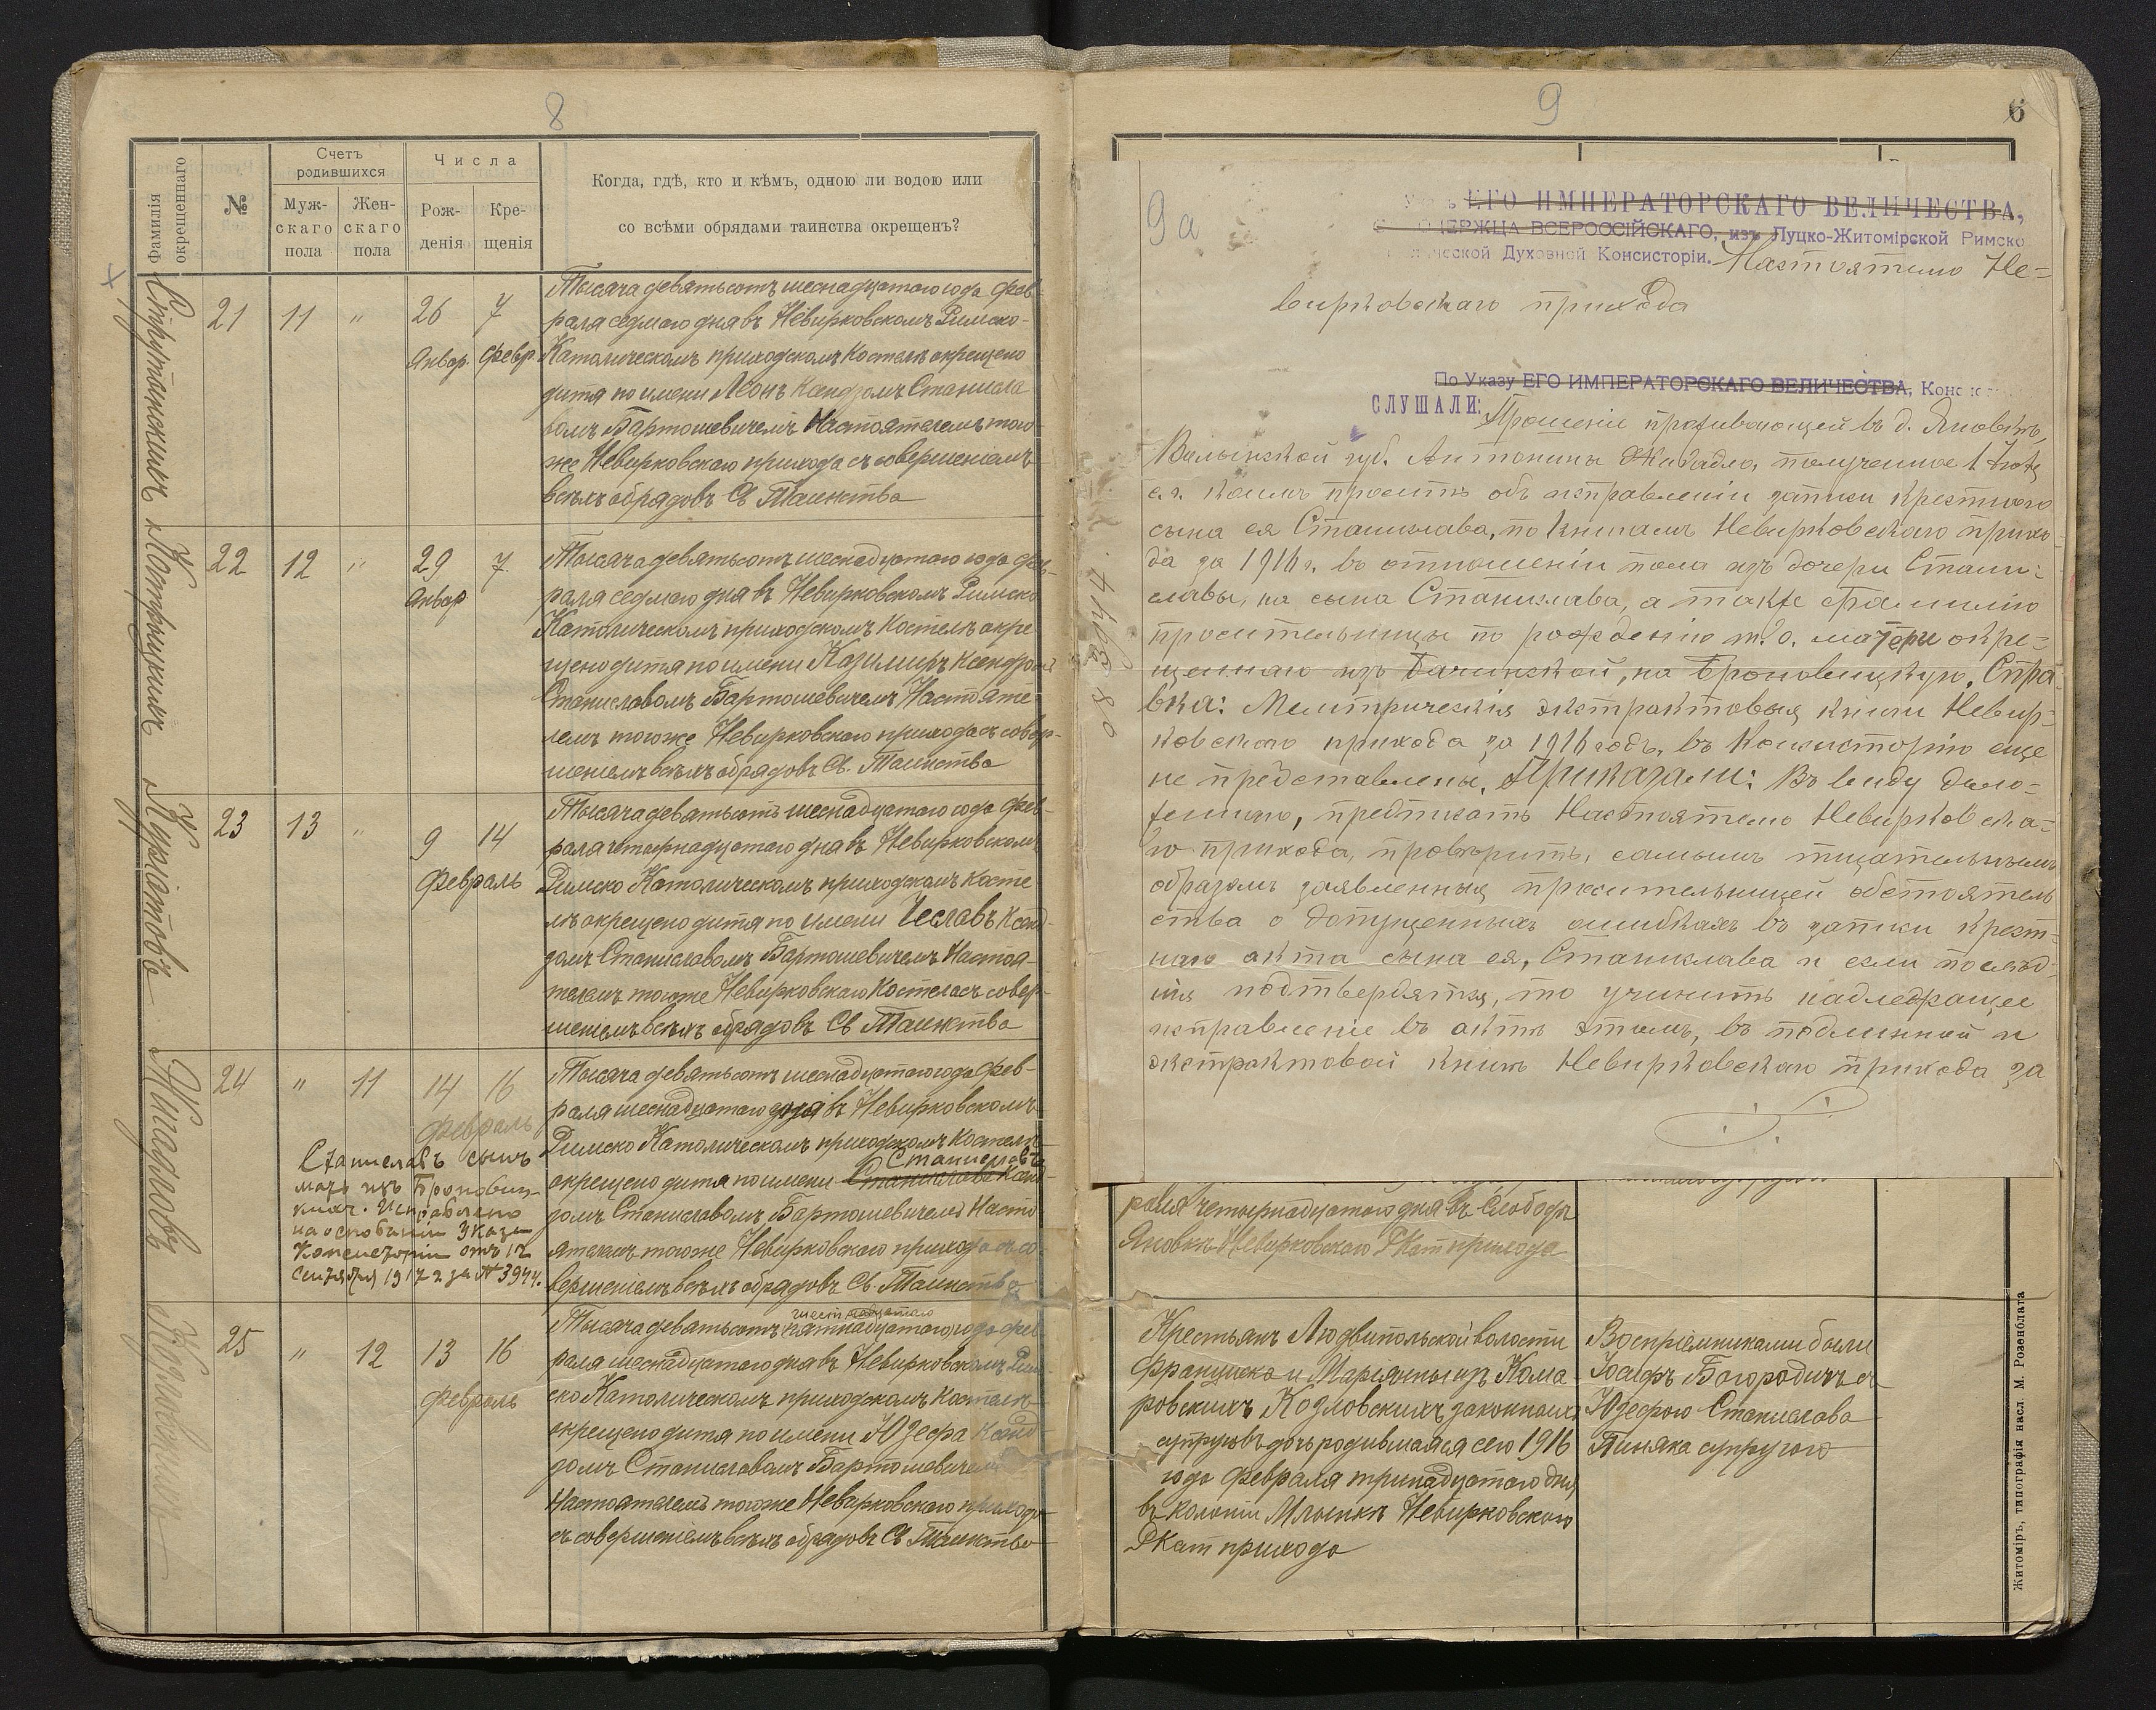 8
Фамилія окрещеннаго
№
Счетъ родившихся
Муж-
скаго
пола
Жен-
скаго
пола
Числа
Рож-
денія
Кре-
щенія
Когда, гдѣ, кто и кѣмъ, одною ли водою или
со всѣми обрядами таинства окрещенъ?
21 11 " 26 7
Январ. февр.
Тысяча девятьсотъ шеснадцатаго года фев-
раля седмаго дня въ Невирковскомъ Римско-
Католическомъ приходскомъ Костелѣ окрещено
дитя по имени Леонъ Ксендзомъ Станисла
вомъ Бартошевичемъ Настоятелемъ того
же Невирковскаго прихода съ совершеніемъ
всѣхъ обрядовъ Св Таинства
22 12 " 29 7
Январ
Тысяча девятьсотъ шеснадцатаго года фев-
раля седмаго дня въ Невирковскомъ Римско
Католическомъ приходскомъ Костелѣ окре
щено дитя по имени Казимиръ Ксендзомъ
Станиславомъ Бартошевичемъ Настояте-
лемъ тогоже Невирковскаго прихода съ совер-
шеніемъ всѣхъ обрядовъ Св. Таинства
Куріатовъ
23 13 " 9 14
Февраль
Тысяча девятьсотъ шеснадцатаго года фев-
раля четырнадцатаго дня въ Невирковскомъ
Римско Католическомъ приходскомъ Косте
лѣ окрещено дитя по имени Чеславъ Ксенд-
зомъ Станиславомъ Бартошевичемъ Настоя-
телемъ тогоже Невирковскаго Костела съ совер-
шеніемъ всѣхъ обрядовъ Св Таинства
24 " 11 14 16
Февраль
Станиславъ сынъ
мать изъ Броновиц-
кихъ. Исправлено
на основаніи Указа
Консисторіи отъ 12
Сентября 1917 г за № 3944.
Тысяча девятьсотъ шеснадцатаго года фев-
раля шеснадцатаго дня въ Невирковскомъ
Римско Католическомъ приходскомъ Костелѣ
Станиславъ
окрещено дитя по имени Станислава Ксенд-
зомъ Станиславомъ Бартошевичемъ Насто
ятелемъ тогоже Невирковскаго прихода съ со-
вершеніемъ всѣхъ обрядовъ Св. Таинства
25 " 12 13 16
Февраль
шестнадцатаго
Тысяча девятьсотъ пятнадцатаго года фев-
раля шеснадцатаго дня въ Невирковскомъ Рим-
ско Католическомъ приходскомъ Костелѣ
окрещено дитя по имени Юзефа Ксенд-
зомъ Станиславомъ Бартошевичемъ
Настоятелемъ тогоже Невирковскаго прихода
съ совершеніемъ всѣхъ обрядовъ Св Таинства
9
6
9а
ЕГО ИМПЕРАТОРСКАГО ВЕЛИЧЕСТВА,
ВСЕРОССІЙСКАГО, изъ Луцко-Житомірской Римско
Духовной Консисторіи. Настоятелю Не-
вирковскаго прихода
По Указу ЕГО ИМПЕРАТОРСКАГО ВЕЛИЧЕСТВА,
СЛУШАЛИ: Прошеніе проживающей въ д. Яновкѣ,
Волынской губ. Антонины полученное 1
с.г. коимъ проситъ объ исправленіи записи крестнаго
сына ея Станислава, по книгамъ Невирковскаго прихо-
да за 1916 г. въ отношеніи пола изъ дочери Стани-
славы, на сына Станислава, а также фамилію
просительницы по рожденію т.е. матери окре-
щеннаго изъ Бачинской, на Броновицкую. Спра-
вка: Метрическія экстрактовыя книги Невир-
ковскаго прихода за 1916 годъ, въ Консисторію еще
не представлены. Приказали: Въ виду дало-
женнаго, предписать Настоятелю Невирковска-
го прихода, провѣрить, самымъ тщательнымъ
образомъ заявленныя просительницей обстоятель
ства о допущенныхъ ошибкахъ въ записи крест-
наго акта сына ея, Станислава и если послѣд-
нія подтвердятся, то учинить надлежащее
исправленіе въ актѣ этомъ, въ подлинной и
экстрактовой книгѣ Невирковскаго прихода за
раля четырнадцатаго дня въ Слободѣ
Яновкѣ Невирковскаго РКат прихода
Крестьянъ Людвипольской волости
Франциска и Маріанны изъ Кома
ровскихъ Козловскихъ законныхъ
супруговъ дочь родившаяся сего 1916
года Февраля тринадцатаго дня
въ колоніи Невирковскаго
РКат прихода
Воспріемниками были
Іосифъ Богородичъ съ
Юзефою Станислава
Пиняка супругою
Житоміръ, типографія насл. М. Розенблата